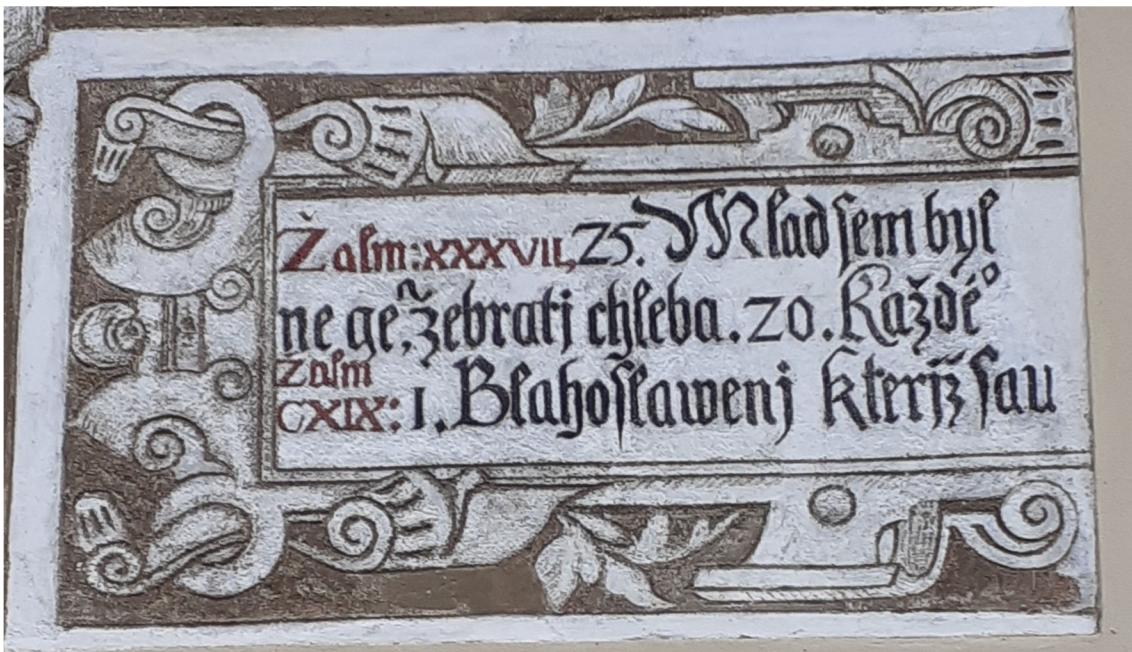 Žalm: XXXVII, 25. Mlad sem byl
ne ge˜, žebratj chleba. 20. Každéº
Zalm
CXIX: 1. Blahoslawenj kterijž sau